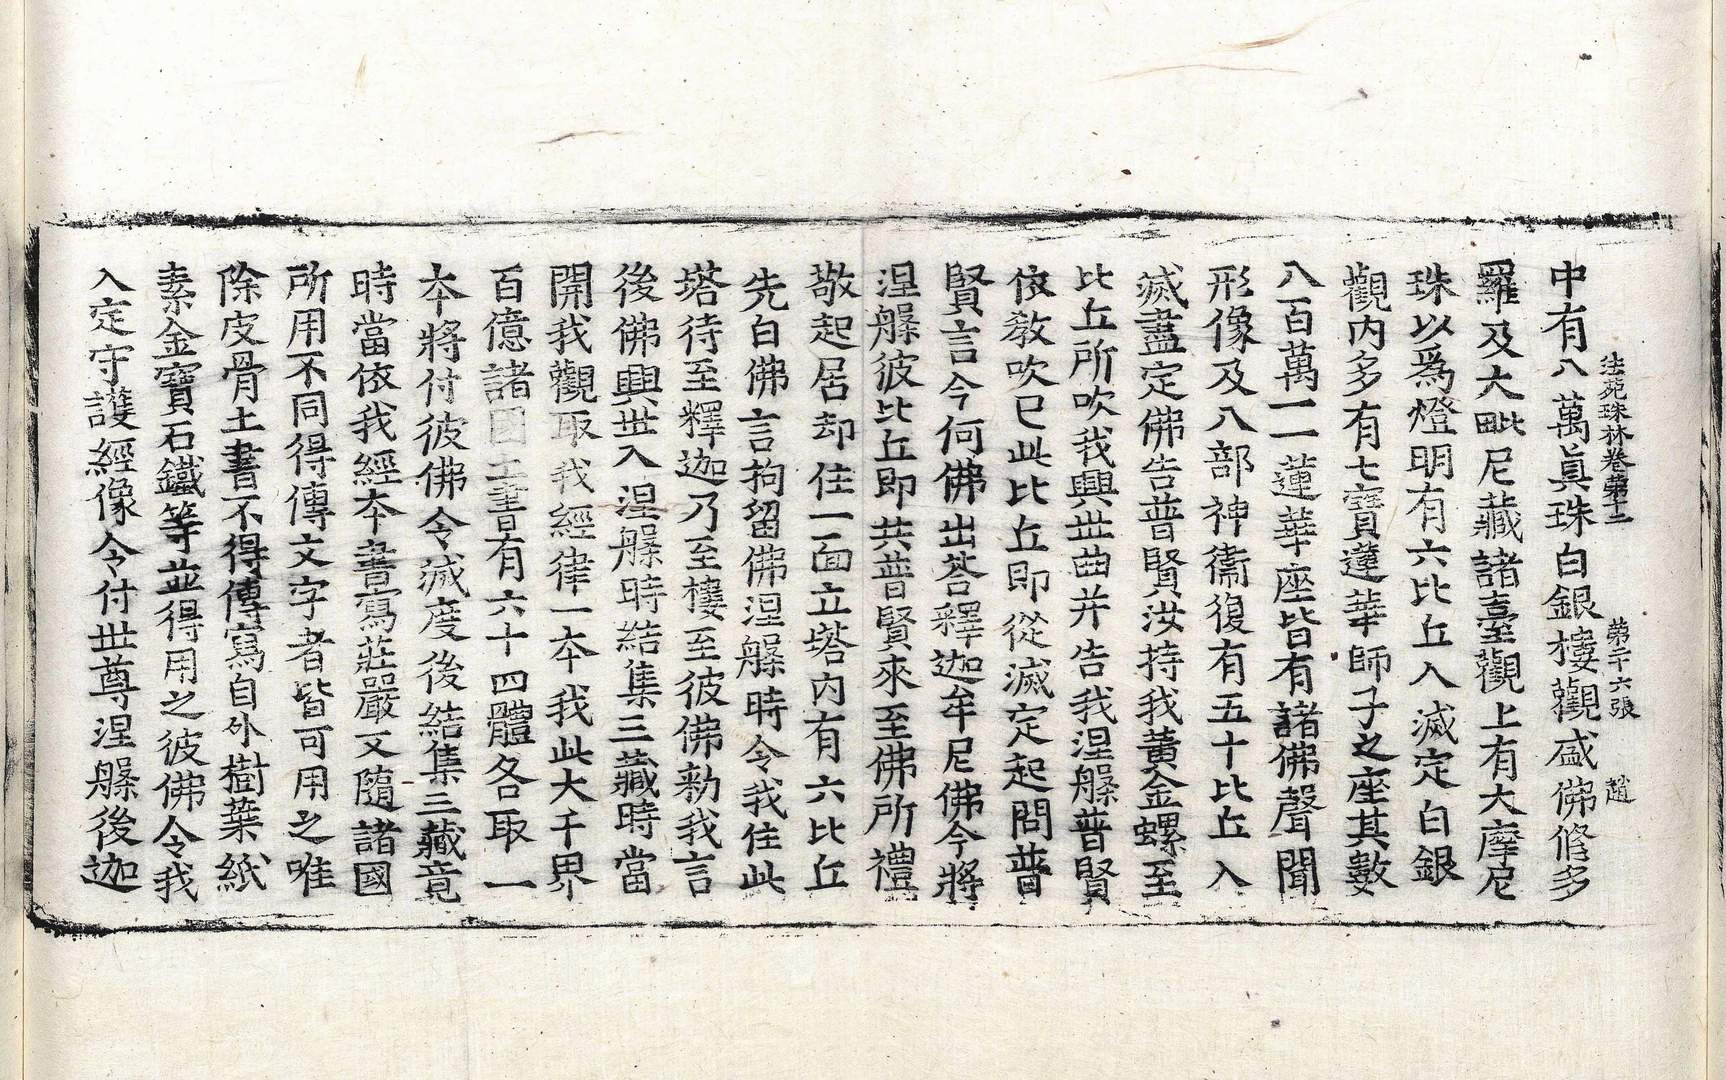 法苑珠林卷第十二　第二十六張　趙
中有八萬眞珠白銀樓觀盛佛脩多
羅及大毗尼藏諸臺觀上有大摩尼
珠以爲燈明有六比丘入滅定白銀
觀內多有七寶蓮華師子之座其數
八百萬一一蓮華座皆有諸佛聲聞
形像及八部神衞復有五十比丘入
滅盡定佛告普賢汝持我黃金螺至
比丘所吹我興世曲并告我涅槃普賢
依敎吹已此比丘即從滅定起問普
賢言今何佛出荅釋迦牟尼佛今將
涅槃彼比丘即共普賢來至佛所禮
敬起居却住一面立塔內有六比丘
先白佛言拘留佛涅槃時令我住此
塔待至釋迦乃至樓至彼佛勑我言
後佛興世入涅槃時結集三藏時當
開我觀取我經律一本我此大千界
百億諸國土書有六十四體各取一
本將付彼佛令滅度後結集三藏竟
時當依我經本書寫莊嚴又隨諸國
所用不同得傳文字者皆可用之唯
除皮骨土書不得傳寫自外樹葉紙
素金寶石鐵等並得用之彼佛令我
入定守護經像令付世尊涅槃後迦